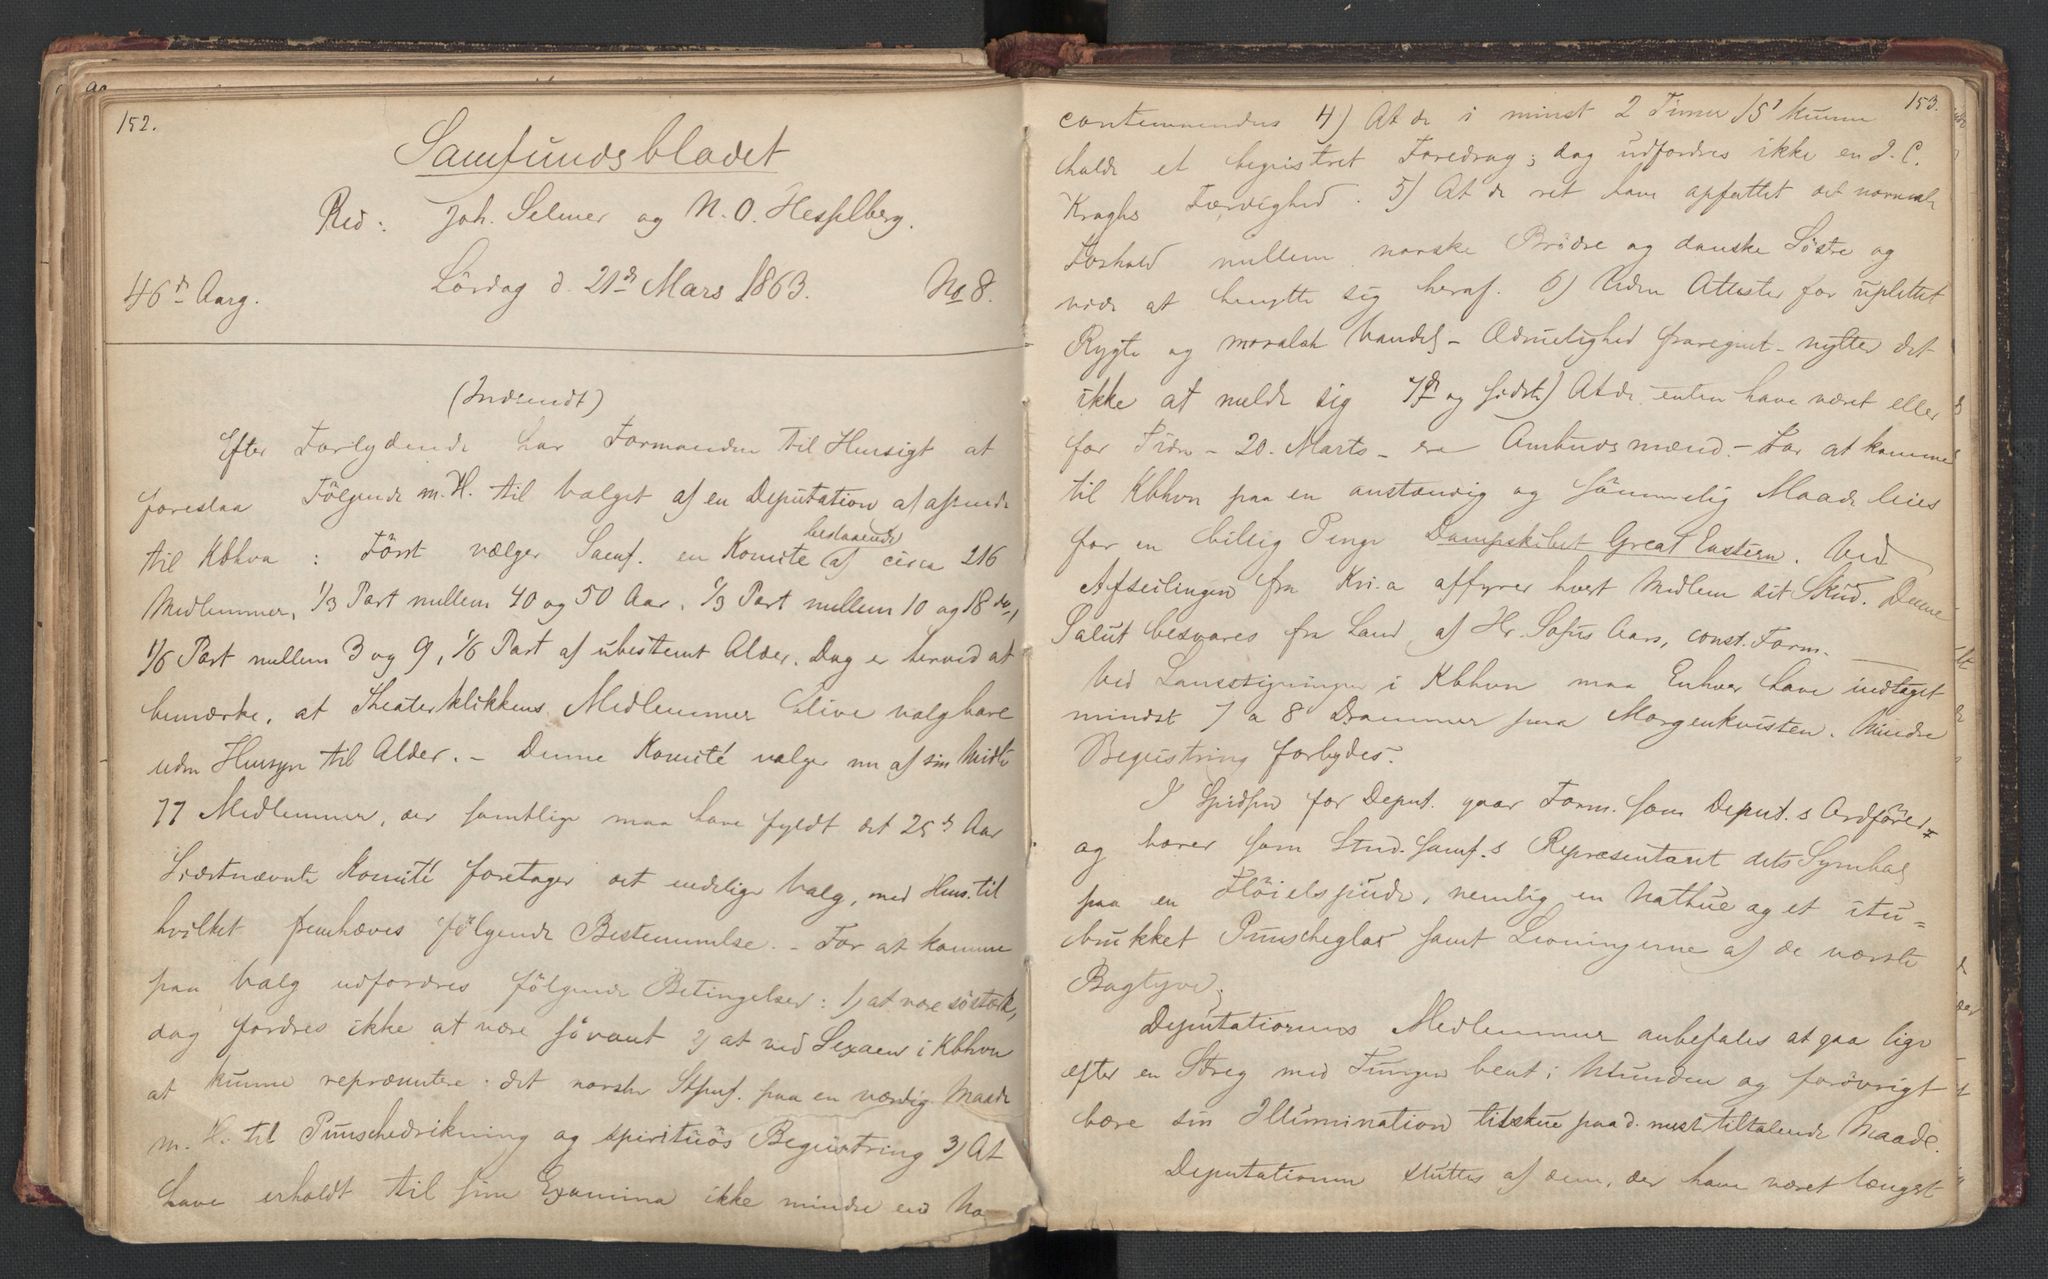 152.
Samfundsbladet
Red: Joh. Selmer og N. O. Hesselberg.
46de Aarg. Lördag d. 21de Mars 1863. No 8.
(Indsendt)
Efter Forlydende har Formanden til Hensigt at
foreslaa Fölgende m. H. til Valget af en Deputation at afsende
til Kbhvn : Först vælger Samf. en Komite bestaaende af circa 216
Medlemmer, 1/3 Part mellem 40 og 50 Aar, 1/3 Part mellem 10 og 18 do,
1/6 Part mellem 3 og 9, 1/6 Part af ubestemt Alder. Dog er herved at
bemærke, at Theaterklikkens Medlemmer blive valgbare
uden Hensyn til Alder. – Denne Komité vælger nu af sin Midte
77 Medlemmer, der samtlige maa have fyldt det 25de Aar
Sidstnævnte Komité foretager det endelige Valg, med Hens. til
hvilket fremhæves fölgende Bestemmelse. – For at komme
paa Valg udfordres fölgende Betingelser: 1) at være söstærk,
dog fordres ikke at være sövant 2) at ved Sexaen i Kbhvn
at kunne repræsentere det norske Stsmf. paa en værdig Maade
m. H. til Punschedrikning og spirituös Begeistring 3) At
have erholdt til sin Examina ikke mindre end No
153.
contemnendus 4) At de i minst 2 Timer 15' kunne
holde et begeistret Foredrag; dog udfordres ikke en J. C.
Kraghs Færdighed. 5) At de ret have opfattet det normale
Forhold mellem norske Brödre og danske Söstre og
vide at benytte sig heraf. 6) Uden Attester for uplettet
Rygte og moralsk Vandel – Ædruelighed fraregnet – nytter det
ikke at melde sig 7de og sidste) At de enten have været eller
for Tiden – 20. Marts – ere Ombudsmænd. – For at komme
til Kbhvn paa en anstændig og sömmelig Maade leies
for en billig Penge Dampskibet Great Eastern. Ved
Afseilingen fra Kr.a affyrer hvert Medlem sit Skud. Denne
Salut besvares fra Land af Hr. Sofus Aars, const. Form.
Ved Landstigningen i Kbhvn maa Enhver have indtaget
mindst 7 a 8 Drammer paa Morgenkvisten. Mindre
Begeistring forbydes.
I Spidsen for Deput. gaar Form. som Deput.s Ordförer
og bærer som Stud. Samf.s Repræsentant dets Symbol
paa en Flöielspude, nemlig en Nathue og et itu-
brukket Punscheglas samt Levningerne af de værste
Bagtyve;
Deputationens Medlemmer anbefales at gaa lige
efter en Streg med Tungen bent i Munden og forövrigt
bære sin Illumination tilskue paa d. mest tiltalende Maade.
Deputationen sluttes af dem, der have været længst